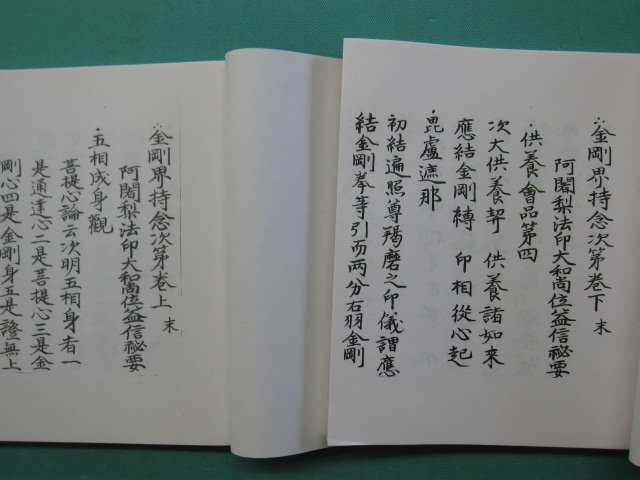 ∴金剛界持念次第卷下 末
阿闍梨法印大和尚位益信祕要
・供養會品第四
次大供養契 供養諸如來
應結金剛縛 印相從心起
・毘盧遮那
初結遍照尊羯磨之印儀謂應
結金剛拳等引而兩分右羽金剛
∴金剛界持念次第卷上 末
阿闍梨法印大和尚位益信祕要
・五相成身觀
菩提心論云次明五相身者一
是通達心二是菩提心三是金
剛心四是金剛身五是證無上